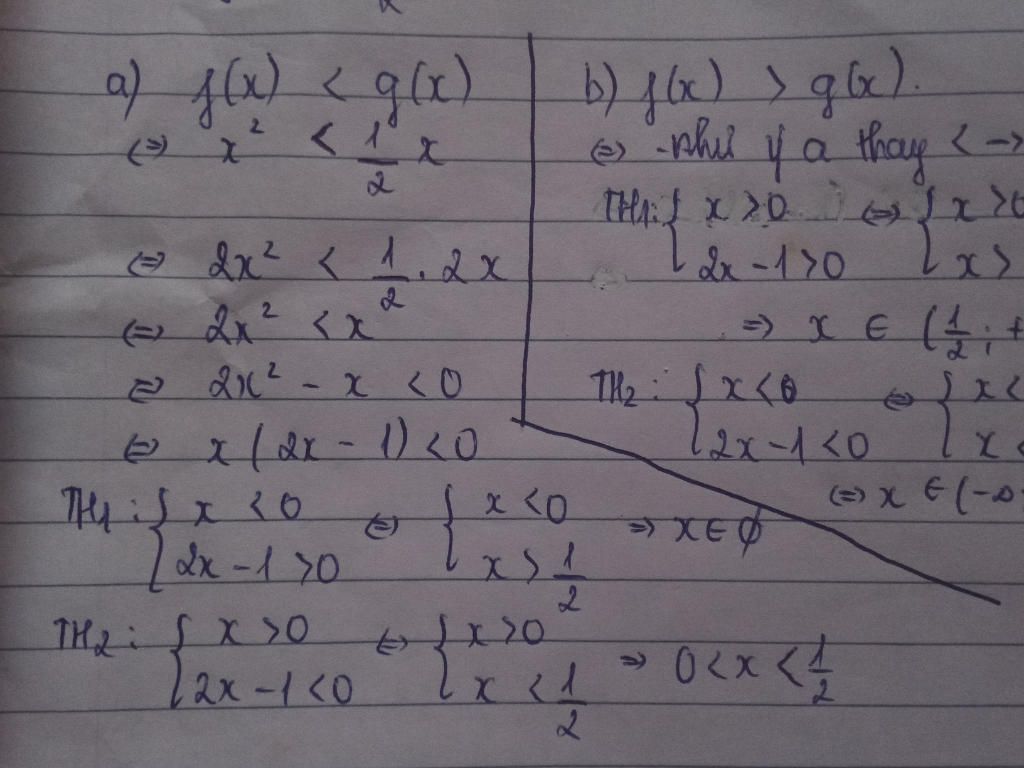 a) f(x) < g(x)
⇔ x² < 1/2 x
⇔ 2x² < 1/2 . 2x
⇔ 2x² < x
⇔ 2x² - x < 0
⇔ x(2x - 1) < 0
TH1: { x < 0 ⇔ { x < 0 ⇒ x ∈ ∅
2x - 1 > 0 x > 1/2
TH2: { x > 0 ⇔ { x > 0 ⇒ 0 < x < 1/2
2x - 1 < 0 x < 1/2
b) f(x) > g(x).
⇔ như ý a thay < →
TH1: { x > 0 ⇔ { x > 0
2x - 1 > 0 x >
⇒ x ∈ (1/2; +
TH2: { x < 0 ⇔ { x <
2x - 1 < 0 x <
⇔ x ∈ (-∞